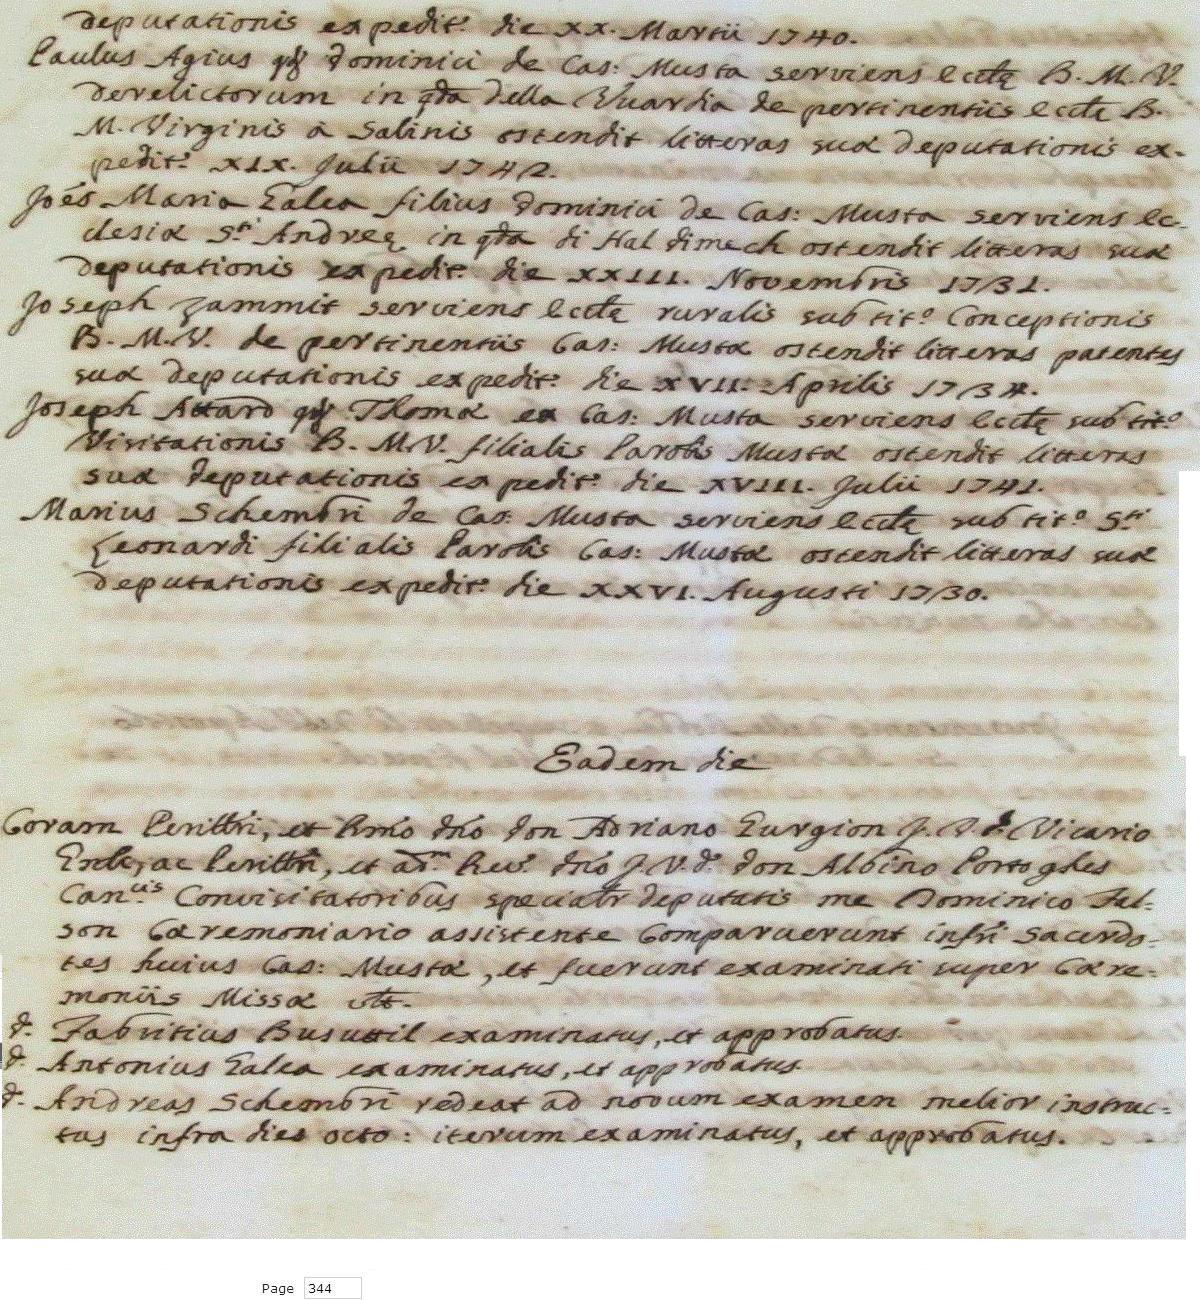 deputationis expedit.s die XX. Martii 1740.
Paulus Agius qdj Dominici de Cas: Musta serviens Ecctę B. M. V.
Derelictorum in qda della Guardia de pertinentiis Ecctę B.
M. Virginis à Salinis ostendit litteras suæ deputationis ex-
pedit.s XIX. Julii 1742.
Joēs Maria Galea filius Dominici de Cas: Musta serviens Ec-
clesiæ S.ti Andreę in qda di Hal Dimech ostendit litteras suæ
deputationis expedit.s die XXIII. Novembris 1731.
Joseph Zammit serviens Ecctę ruralis sub tit.o Conceptionis
B. M. V. de pertinentiis Cas: Mustæ ostendit litteras patentes
suæ deputationis expedit.s die XVII. Aprilis 1734.
Joseph Attard qdj Thomæ ex Cas: Musta serviens Ecctę sub tit.o
Visitationis B. M. V. filialis Parolis Mustæ ostendit litteras
suæ deputationis expedit.s die XVIII. Julii 1741.
Marius Schembri de Cas: Musta serviens Ecctę sub tit.o S.ti
Leonardi filialis Parolis Cas: Mustæ ostendit litteras suæ
deputationis expedit.s die XXVI. Augusti 1730.
Eadem die
Coram Perittri, et Rmo dno don Adriano Gurgion J. V. d. Vicario
Gnli, ac Perittri, et adm Rev.o dno J. V. d. don Albino Portoghes
Can.cis Convisitatoribus specialr deputatis me Dominico Fel-
son Cæremoniario assistente Comparuerunt infri Sacerdo-
tes huius Cas: Mustæ, et fuerunt examinati super Cære-
moniis Missæ vtt.
d. Fabritius Busuttil examinatus, et approbatus.
d. Antonius Galea examinatus, et approbatus.
d. Andreas Schembri redeat ad novum examen melior instruc-
tus infra dies octo: iterum examinatus, et approbatus.
Page 344